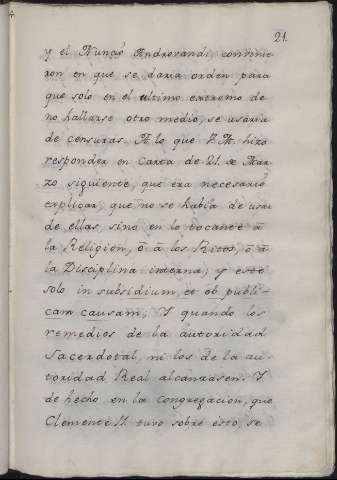 21.
y el Nunció Androvandi, convinie-
ron en que se daria orden para
que solo en el ultimo extremo de
no hallarse otro medio, se usaria
de censuras. A lo que V.M. hizo
responder en Carta de 21. de Mar-
zo siguiente, que era necesario
explicar, que no se habia de usar
de ellas, sino en lo tocante â
la Religion, ô â los Ritos, ô â
la Disciplina interna; y esto
solo in subsidium, et ob publi-
cam causam, Y quando los
remedios de la autoridad
Sacerdotal, ni los de la au-
toridad Real alcanzasen. Y
de hecho en la congregacion, que
Clemente 11. tuvo sobre esto, se